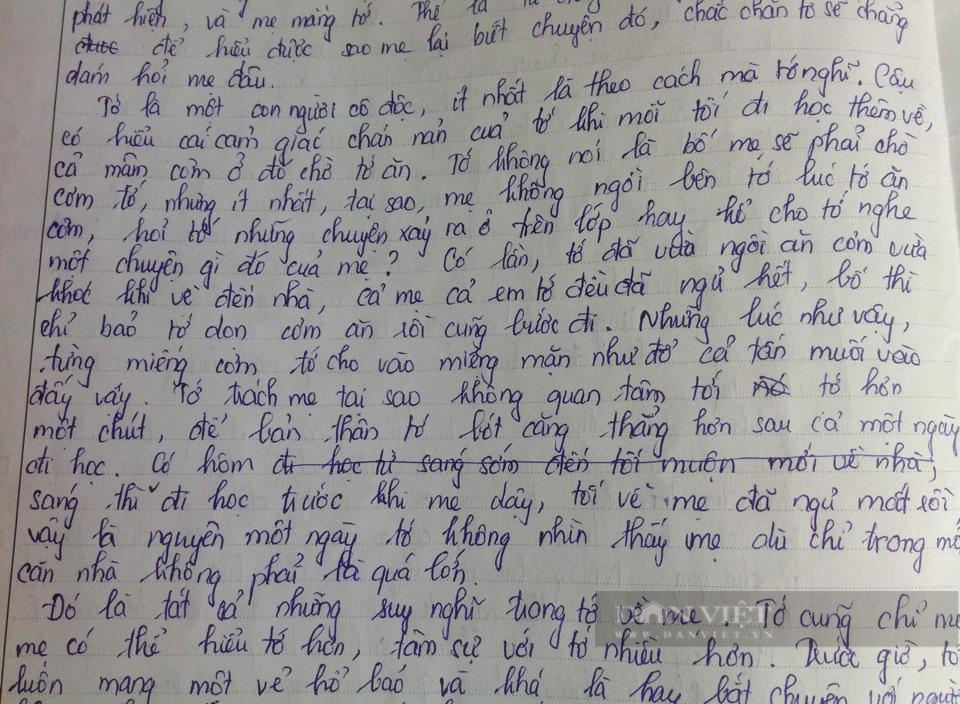 phát hiện, và mẹ mắng tớ. Thế là
để hiểu được sao mẹ lại biết chuyện đó, chắc chắn tớ sẽ chẳng
dám hỏi mẹ đâu.
Tớ là một con người cô độc, ít nhất là theo cách mà tớ nghĩ. Cậu
có hiểu cái cảm giác chán nản của tớ khi mỗi tối đi học thêm về,
cả mâm cơm ở đó chờ tớ ăn. Tớ không nói là bố mẹ sẽ phải chờ
cơm tớ, nhưng ít nhất, tại sao, mẹ không ngồi bên tớ lúc tớ ăn
cơm, hỏi tớ những chuyện xảy ra ở trên lớp hay kể cho tớ nghe
một chuyện gì đó của mẹ? Có lần, tớ đã vừa ngồi ăn cơm vừa
khóc khi về đến nhà, cả mẹ cả em tớ đều đã ngủ hết, bố thì
chỉ bảo tớ dọn cơm ăn rồi cũng bước đi. Những lúc như vậy,
từng miếng cơm tớ cho vào miệng mặn như đổ cả tấn muối vào
đấy vậy. Tớ trách mẹ tại sao không quan tâm tới tớ hơn
một chút, để bản thân tớ bớt căng thẳng hơn sau cả một ngày
đi học. Có hôm đi học từ sáng sớm đến tối muộn mới về nhà,
sáng thì đi học trước khi mẹ dậy, tối về mẹ đã ngủ mất rồi
vậy là nguyên một ngày tớ không nhìn thấy mẹ dù chỉ trong
căn nhà không phải là quá lớn.
Đó là tất cả những suy nghĩ trong tớ về mẹ. Tớ cũng chỉ
mẹ có thể hiểu tớ hơn, tâm sự với tớ nhiều hơn. Trước giờ, tớ
luôn mang một vẻ hổ báo và khá là hay bắt chuyện với người
DÂN VIỆT
WWW.DANVIET.VN